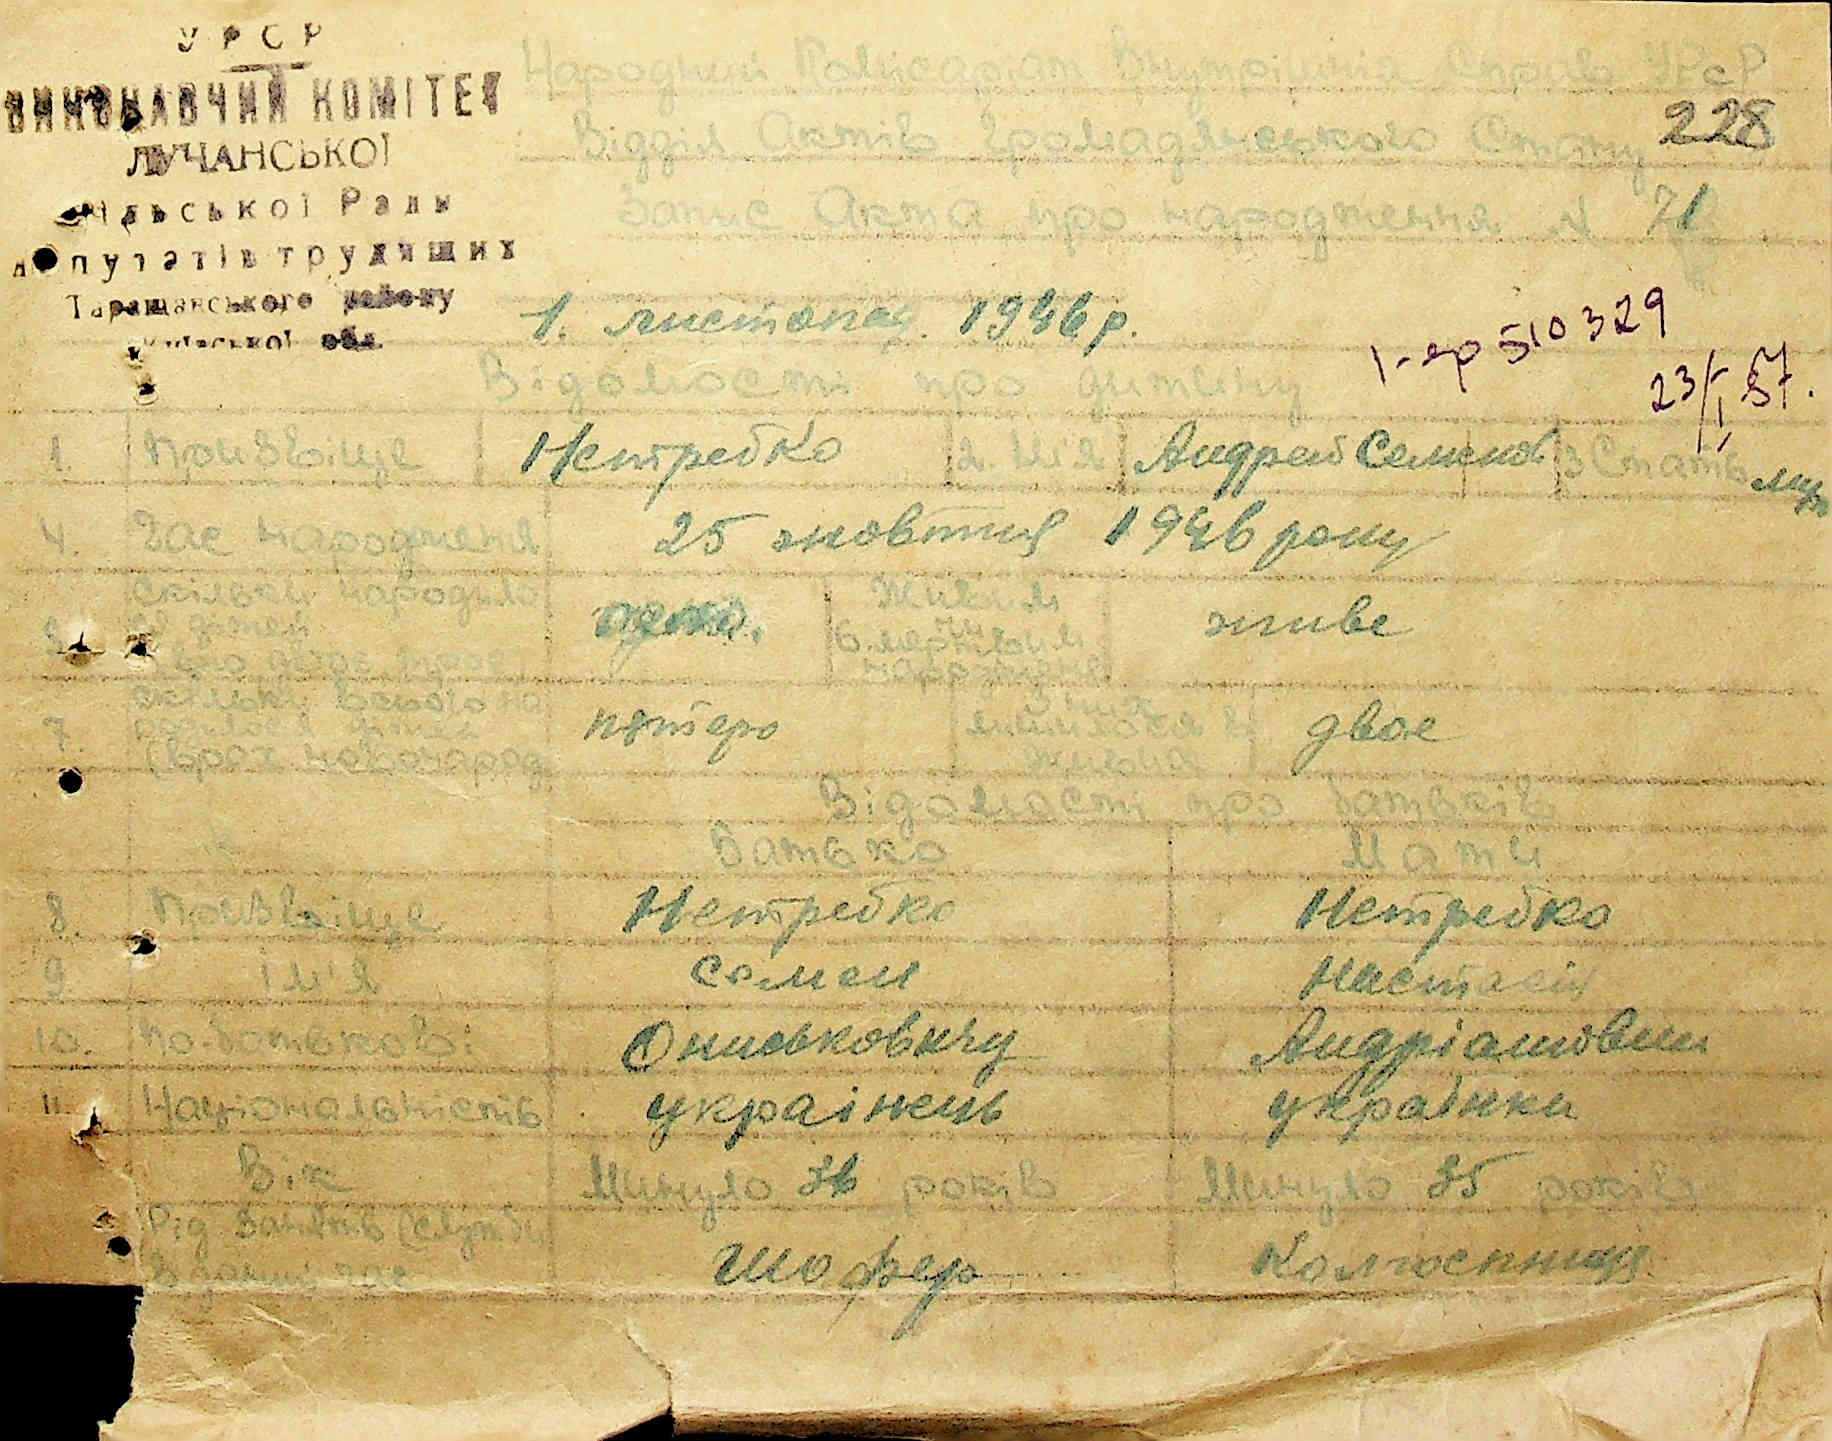 УРСР
ВИКОНАВЧИЙ КОМІТЕТ
ЛУЧАНСЬКОЇ
сільської Ради
депутатів трудящих
Таращанського району
Київської обл.
Народний Комісаріат Внутрішніх Справ УРСР
228
Відділ Актів Громадянського Стану
Запис Акта про народження N 71
1. листопад. 1946 р.
510329
23/I 57.
Відомості про дитину
1. Призвіще Нетребко 2. Ім'я Андрей Семенов 3 Стать муж
4. Час народженя 25 жовтня 1946 року
5 Скільки народило ся дітей одно. 6. Живим чи мертвим народжене живе
7. Скільки всього народилося дітей (врах новонарод пятеро З них лишилося в живих двое
Відомості про батьків
Батько Мати
8. Призвіще Нетребко Нетребко
9. Ім'я Семен Настасія
10. По-батькові Ониськович Андріановни
11. Національність українець українка
Вік Минуло 36 років Минуло 35 років
Рід занять (служби
в даний час шофер Колгоспниця